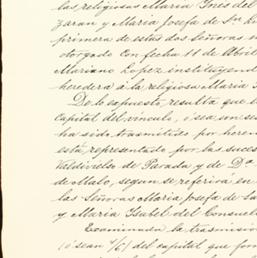 las religiosas Maria Ynes del
zaran y Maria Josefa de Sn
primera de estas dos Señoras
otorgado con fecha 11 de Abril
Mariano Lopez instituyend
heredera á la religiosa Maria
De lo expuesto, resulta que
capital del vinculo, ó sea, son
ha sido trasmitido por heren
está representado por las suces
Valdivielso de Parada y de Da
de Malo, segun se referirá en
las Señoras Maria Josefa de
y Maria Isabel del Consuel
Examinada la trasmision
(ó sean 1/6) del capital que for